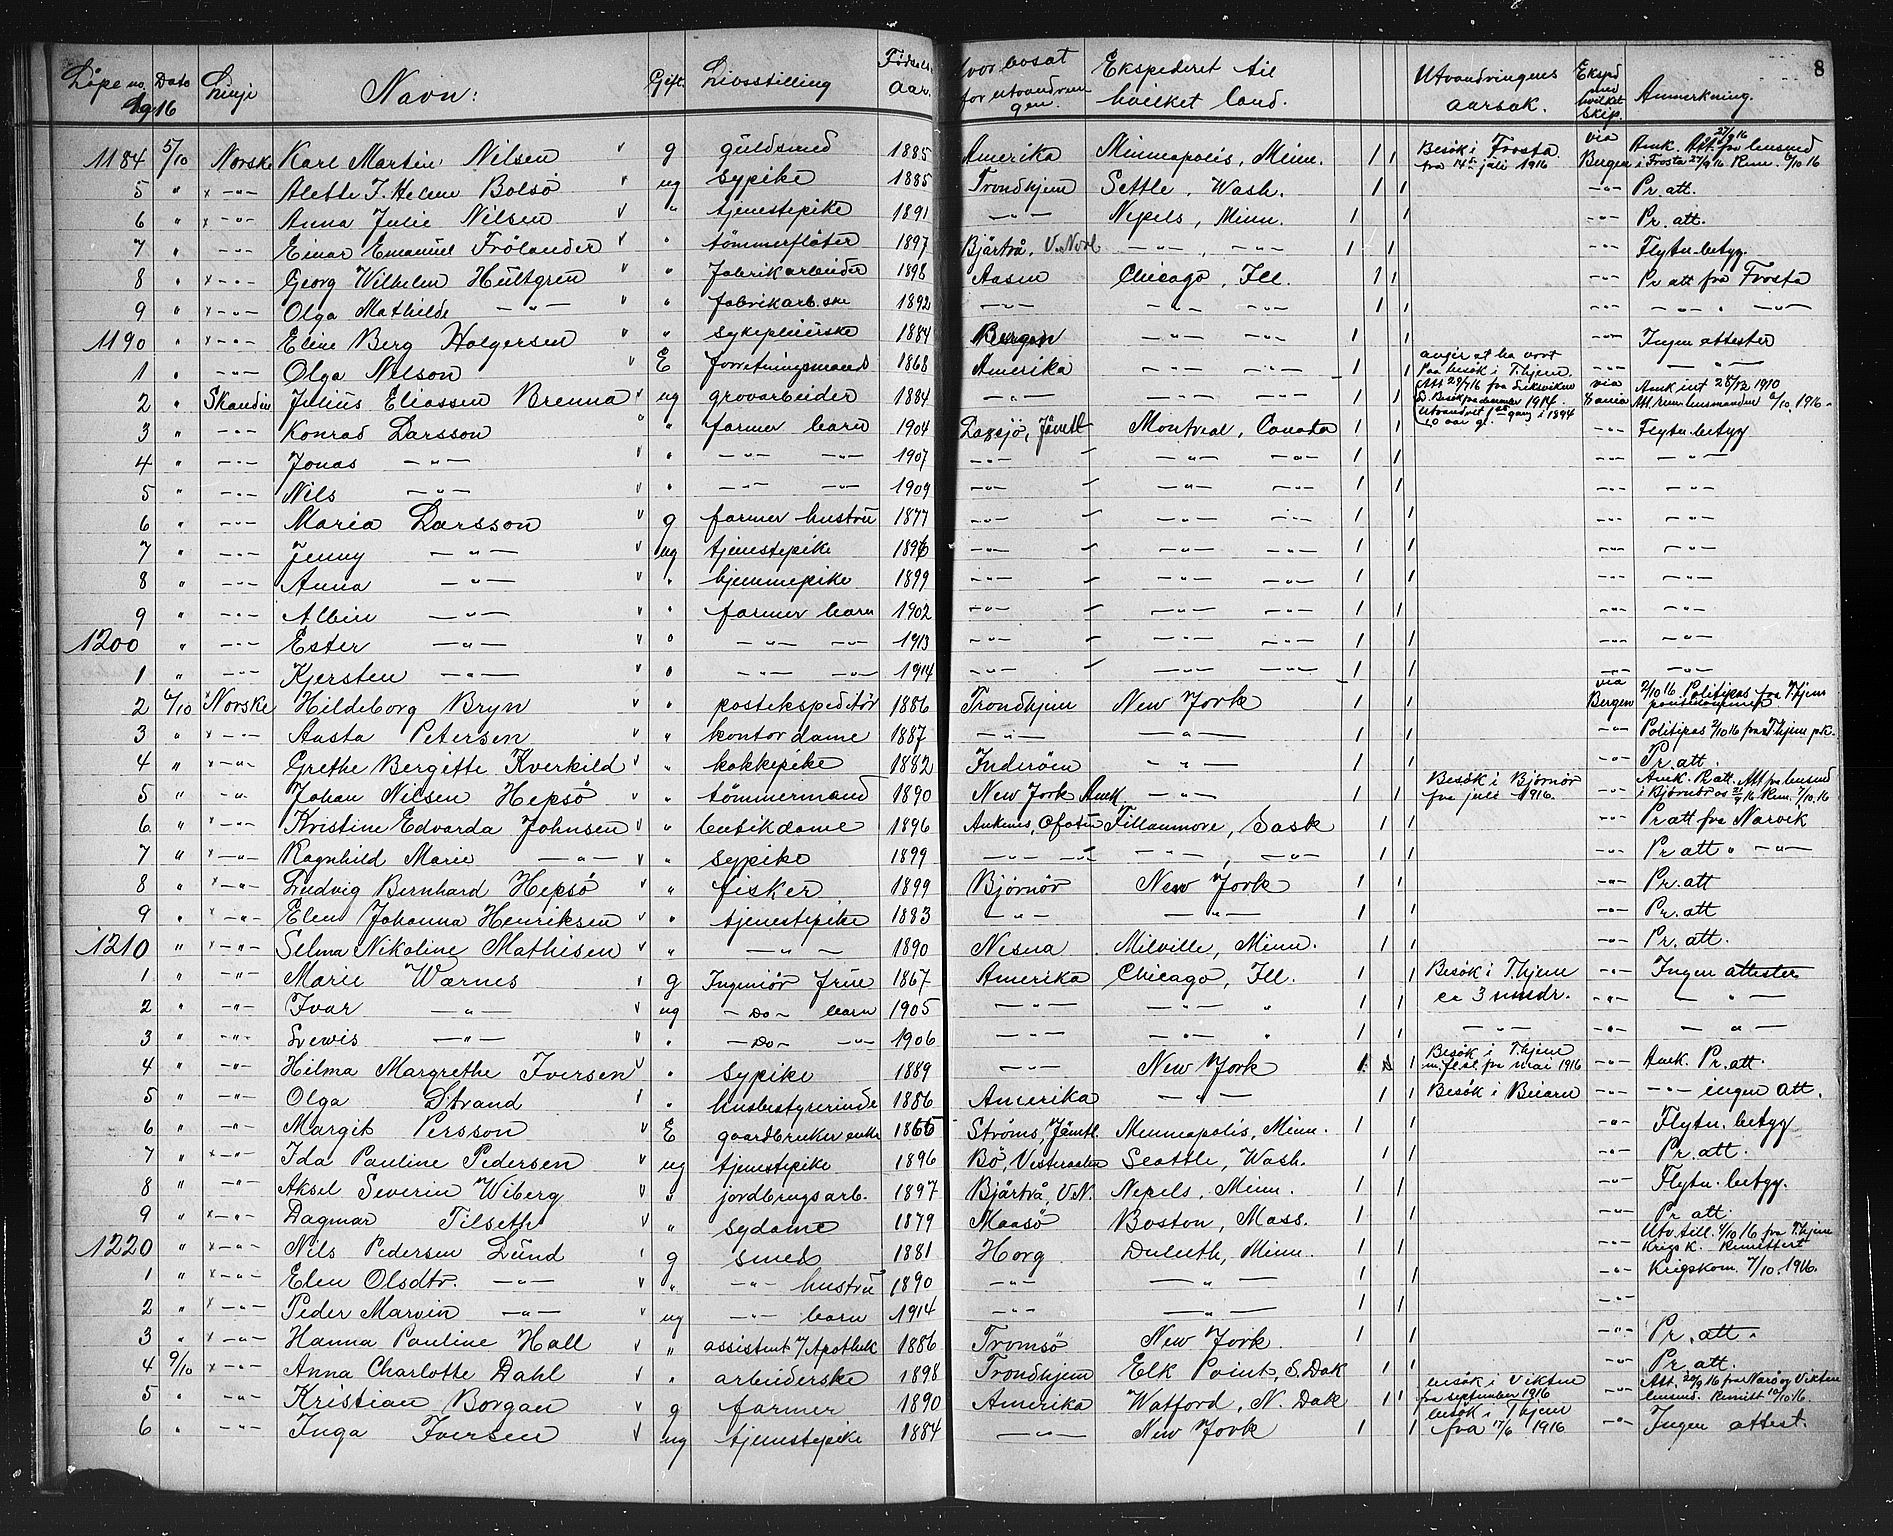 8
Löpe no. Dato Linje Navn: Gift Livsstilling Födsels aar. Hvor bosat for utvandringen. Ekspederet til hvilket land. Utvandringens aarsak. Eksped med hvilket Skip. Anmerkning.
1916
1184 5/10 Norske Karl Martin Nilsen v g guldsmed 1885 Amerika Minneapolis, Minn. 1 1 Besök i Frosta fra 14de juli 1916 via Bergen Amk. Att. fra lensmd i Frosta 27/9 16 Rem. 6/10 16
5 " x -"- Alette J. Helene Bolsö v ug sypike 1885 Trondhjem Settle, Wash. 1 1 -"- Pr. att.
6 " x -"- Anna Julie Nilsen v " tjenestepike 1891 -"- Nepels, Minn. 1 1 -"- Pr. att.
7 " -"- Einar Emanuel Frölander v " tömmerflöter 1897 Bjärtrå, V. Norl -"- , -"- 1 1 -"- Flytn. betyg.
8 " x -"- Georg Wilhelm Hultgren v " fabrikarbeider 1898 Aasen Chicago, Ill. 1 1 -"- Pr att fra Frosta
9 " x -"- Olga Mathilde -"- v " fabrikarb.ske 1892 -"- -"- -"- 1 1 -"- -"- " -"-
1190 " x -"- Eline Berg Holgersen v " sykepleierske 1884 Bergen -"- -"- 1 1 -"- Ingen attester
1 " -"- Olga Nelson v E forretningsmand 1868 Amerika -"- -"- 1 1 angir at ha vört paa besök i T.hjem. -"- -"-
2 " Skandin Julius Eliassen Brenna v ug grovarbeider 1884 -"- -"- -"- 1 1 Besök fra desember 1914. Utvandret 1ste gang i 1894 10 aar gl. via Amk int 28/12 1910 Att. rem. lensmanden 6/10. 1916.
3 " -"- Konrad Larsson v " farmer barn 1904 Laxsjö, Jämtl Montreal, Canada 1 1 -"- Flytn. betyg
4 " -"- Jonas -"- v " -"- -"- 1907 -"- -"- -"- 1 1 -"- -"-
5 " -"- Nils -"- v " -"- -"- 1909 -"- -"- -"- 1 1 -"- -"-
6 " -"- Maria Larsson v g farmer hustru 1877 -"- -"- -"- 1 1 -"- -"-
7 " -"- Jenny -"- v ug tjenestepike 1896 -"- -"- -"- 1 1 -"- -"-
8 " -"- Anna -"- v " hjemmepike 1899 -"- -"- -"- 1 1 -"- -"-
9 " -"- Albin -"- v " farmer barn 1902 -"- -"- -"- 1 1 -"- -"-
1200 " -"- Ester -"- v " -"- -"- 1913 -"- -"- -"- 1 1 -"- -"-
1 " -"- Kjersten -"- v " -"- -"- 1914 -"- -"- -"- 1 1 -"- -"-
2 6/10 x Norske Hildeborg Bryn v " postekspeditör 1886 Trondhjem New York 1 1 via Bergen 2/10 16 Politipas fra T.hjem
3 " x -"- Aasta Petersen v " kontordame 1887 -"- -"- 1 1 -"- Politipas 2/10 16 fra T.hjem p.k.
4 " x -"- Grethe Bergitte Kverkild v " kokkepike 1882 Inderöen -"- 1 1 -"- Pr. att.
5 " -"- Johan Nilsen Hepsö v " tömmermand 1890 New York Amk -"- 1 1 Besök i Björnör fra juli 1916. -"- Amk. P. att. Att fra lensmd i Björnör os 21/9 16 Rem. 7/10. 16
6 " x -"- Kristine Edvarda Johnsen v " butikdame 1896 Ankenes, Ofoten Fillanmore, Sask 1 1 -"- Pr att fra Narvik
7 " x -"- Ragnhild Marie -"- v " sypike 1899 -"- -"- -"- , -"- 1 1 -"- Pr att " -"-
8 " x -"- Ludvig Bernhard Hepsö v " fisker 1899 Björnör New York 1 1 -"- Pr. att
9 " x -"- Elen Johanna Henriksen v " tjenestepike 1883 -"- -"- 1 1 -"- Pr. att
1210 " x -"- Selma Nikoline Mathisen v " -"- 1890 Nesna Milville, Minn. 1 1 -"- Pr. att.
1 " -"- Marie Wærnes v g Ingeniör frue 1867 Amerika Chicago, Ill. 1 1 Besök i T.hjem ca 3 mndr. -"- Ingen attester
2 " -"- Ivar -"- v ug -Do- barn 1905 -"- -"- " 1 1 -"- -"-
3 " -"- Lewis -"- v " -Do- -"- 1906 -"- -"- " 1 1 -"- -"- -"-
4 " x -"- Hilma Margrethe Iversen v " sypike 1889 -"- New York 1 1 1 Besök i T.hjem m. fl. st. fra mai 1916 -"- Amk. Pr. att.
5 " -"- Olga Strand v " husbestyrerinde 1886 Amerika -"- 1 1 Besök i Beiarn -"- -"- ingen att.
6 " -"- Margit Persson v E gaardbruker enke 1866 Ströms, Jämtl. Minneapolis, Minn. 1 1 -"- Flytn. betyg
7 " x -"- Ida Pauline Pedersen v ug tjenestepike 1896 Bö, Vesteraalen Seattle, Wash. 1 1 -"- Pr. att.
8 " -"- Aksel Severin Wiberg v " jordbrugsarb. 1897 Bjärtrå, V.N. Nepels, Minn. 1 1 -"- Flytn. betyg.
9 " x -"- Dagmar Tilseth v " sydame 1879 Maasö Boston, Mass. 1 1 -"- Pr. att.
1220 " x -"- Nils Pedersen Lund v g smed 1881 Horg Duluth, Minn. 1 1 -"- Utv. till. 4/10 16 fra T.hjem Krigsk. Remittert
1 " x -"- Elen Olsdtr. -"- v " -"- hustru 1890 -"- -"- 1 1 -"- Krigskom. 7/10. 1916.
2 " x -"- Peder Marvin -"- v ug -"- barn 1914 -"- -"- 1 1 -"-
3 " x -"- Hanna Pauline Hall v " assistent v/ Apothek 1886 Tromsö New York 1 1 -"- Pr. att.
4 9/10 x -"- Anna Charlotte Dahl v " arbeiderske 1898 Trondhjem Elk Point, S. Dak 1 1 -"- Pr. att.
5 " -"- Kristian Borgan v g farmer 1890 Amerika Watford, N. Dak 1 1 besök i Vikten fra september 1916 -"- Att. 20/9 16 fra Nærö og Vikten lensmd. Remitt 10/10 16.
6 " -"- Inga Iversen v ug tjenestepike 1884 -"- New York 1 1 besök i T.hjem fra 17/6 1916 -"- Ingen attest.